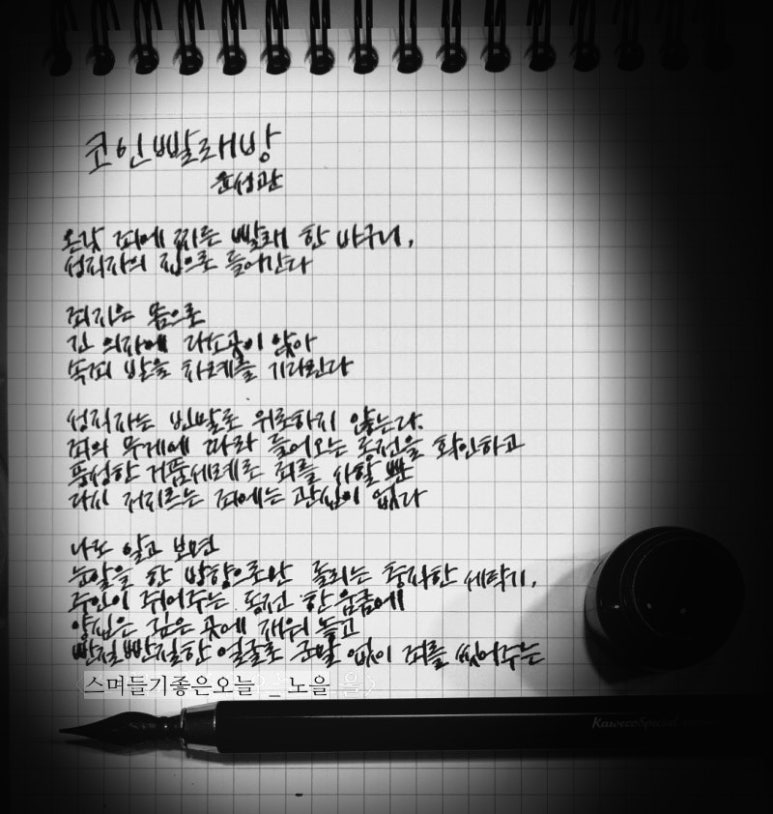 코인빨래방
윤성관
온갖 죄에 찌든 빨래 한 바구니,
성직자의 집으로 들어간다
죄지은 몸으로
긴 의자에 다소곳이 앉아
속죄 받을 차례를 기다린다
성직자는 빈말로 위로하지 않는다.
죄의 무게에 따라 들어오는 동전을 확인하고
풍성한 거품세례로 죄를 사할 뿐
다시 저지르는 죄에는 관심이 없다
나도 알고 보면
눈알을 한 방향으로만 돌리는 충직한 세탁기,
주인이 쥐어주는 동전 한 움큼에
양심은 깊은 곳에 재워 놓고
빤질빤질한 얼굴로 군말 없이 죄를 씻어주는
스며들기좋은오늘 _ 노을
Kaweco